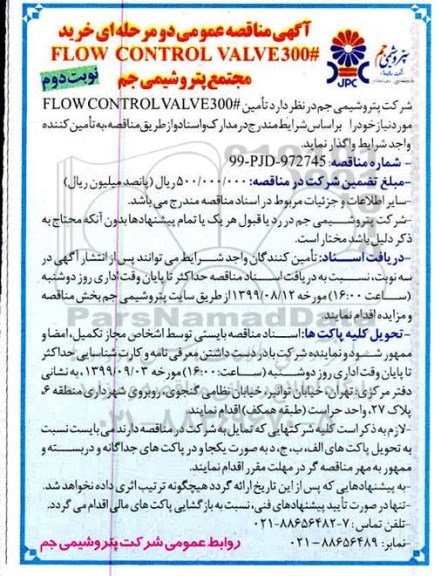 آگهی مناقصه عمومی دو مرحله ای خرید
FLOW CONTROL VALVE300#
مجتمع پتروشیمی جم
نوبت دوم
پتروشیمی جم
JPC
شرکت پتروشیمی جم در نظر دارد تأمین FLOW CONTROL VALVE300#
مورد نیاز خود را براساس شرایط مندرج در مدارک و اسناد و از طریق مناقصه، به تأمین کننده
واجد شرایط واگذار نماید.
- شماره مناقصه: 99-PJD-972745
- مبلغ تضمین شرکت در مناقصه: ۵۰۰/۰۰۰/۰۰۰ ریال (پانصد میلیون ریال)
- سایر اطلاعات و جزئیات مربوط در اسناد مناقصه مندرج می باشد.
- شرکت پتروشیمی جم در رد یا قبول هر یک یا تمام پیشنهادها بدون آنکه محتاج به
ذکر دلیل باشد مختار است.
- دریافت اسناد: تأمین کنندگان واجد شرایط می توانند پس از انتشار آگهی در
سه نوبت، نسبت به دریافت اسناد مناقصه حداکثر تا پایان وقت اداری روز دوشنبه
(ساعت ۱۶:۰۰) مورخه ۱۳۹۹/۰۸/۱۲ از طریق سایت پتروشیمی جم بخش مناقصه
و مزایده اقدام نمایند.
- تحویل کلیه پاکت ها: اسناد مناقصه بایستی توسط اشخاص مجاز تکمیل، امضا و
ممهور شود و نماینده شرکت با در دست داشتن معرفی نامه و کارت شناسایی حداکثر
تا پایان وقت اداری روز دوشنبه (ساعت ۱۶:۰۰) مورخه ۱۳۹۹/۰۹/۰۳، به نشانی
دفتر مرکزی: تهران، خیابان توانیر، خیابان نظامی گنجوی، روبروی شهرداری منطقه ۶،
پلاک ۲۷، واحد حراست (طبقه همکف) اقدام نمایند.
- لازم به ذکر است کلیه شرکتهایی که تمایل به شرکت در مناقصه دارند می بایست نسبت
به تحویل پاکت های الف، ب، ج، د به صورت یکجا و در پاکت های جداگانه و دربسته و
ممهور به مهر مناقصه گر در مهلت مقرر اقدام نمایند.
- به پیشنهادهایی که پس از این تاریخ ارائه گردد هیچگونه ترتیب اثری داده نخواهد شد.
- تنها در صورت تأیید پیشنهادهای فنی، نسبت به بازگشایی پاکت های مالی اقدام می گردد.
- تلفن تماس: ۷-۸۸۶۵۶۴۸۲-۰۲۱
- نمابر: ۸۸۶۵۶۴۸۹-۰۲۱
روابط عمومی شرکت پتروشیمی جم
ParsNamadData